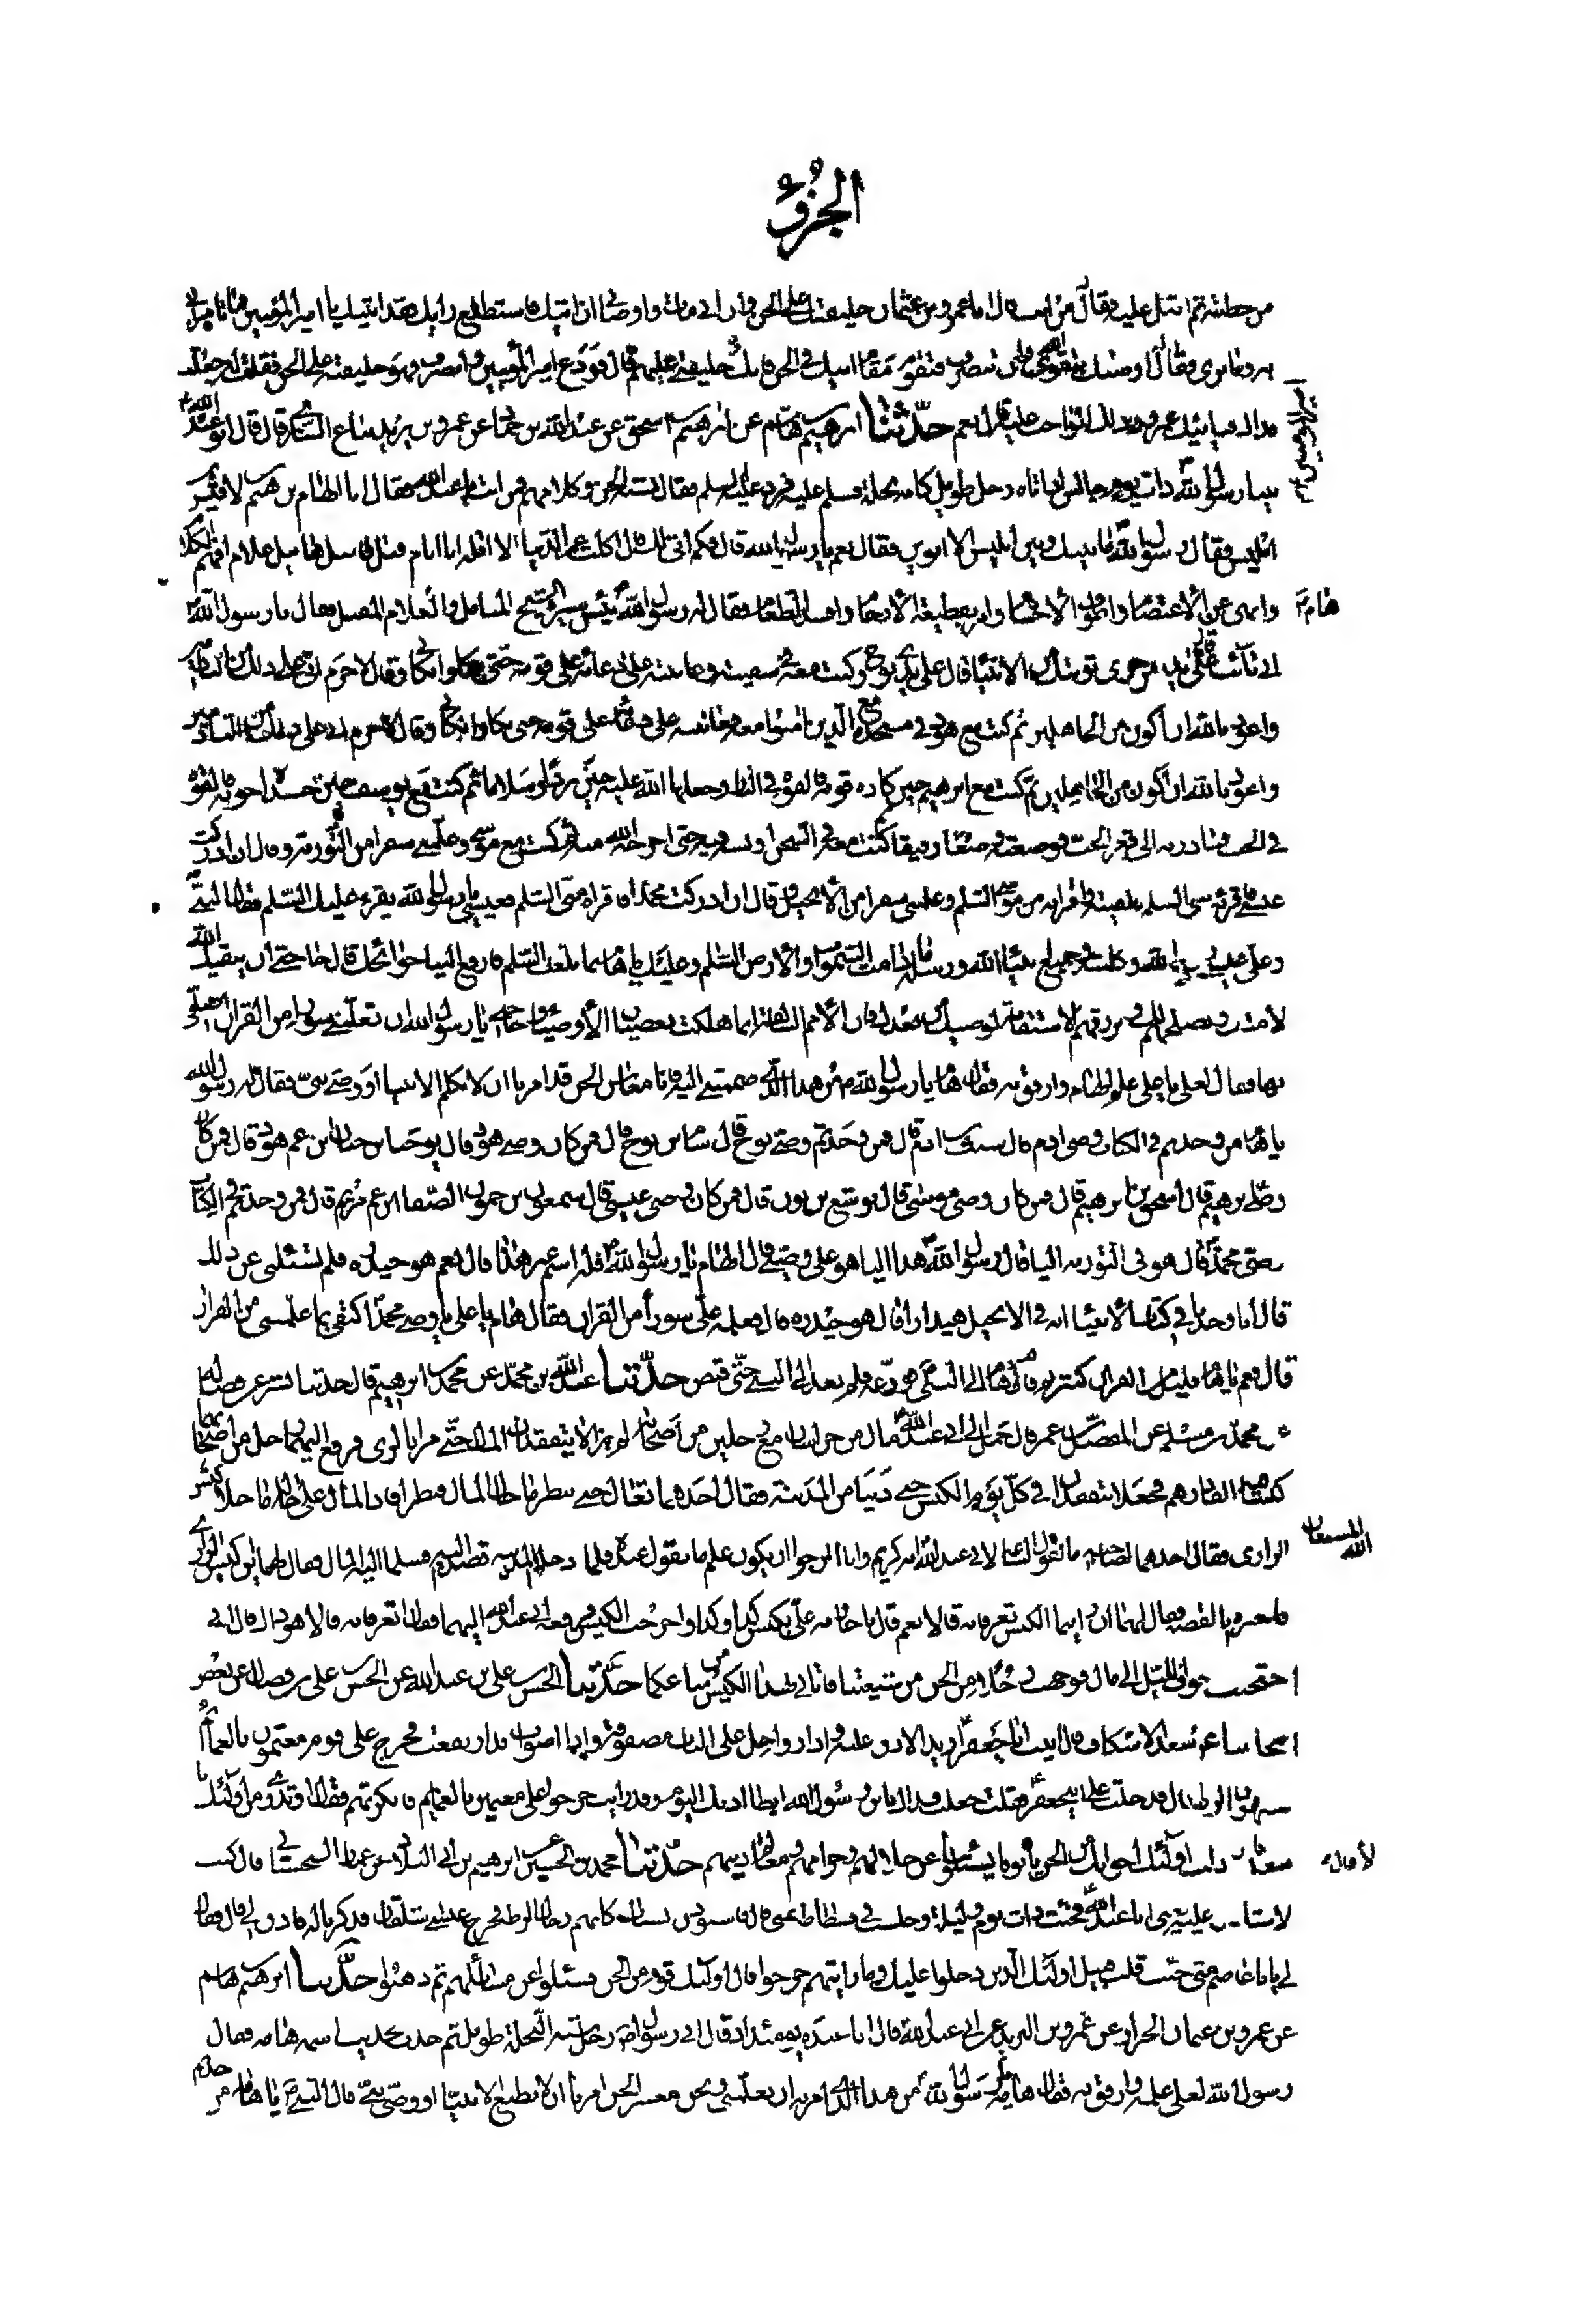 الجزؤ
من خطبته ثم اقبل عليه فقال من انت قال انا عمرو بن عثمان خليفتك على الجن وان ابى مات واوصانى ان اتيك فاستطلع رايك وقد اتيتك يا امير المؤمنين فما تأمرنى
به وما ترى فقال اوصيك بتقوى الله وان تنصرف فتقوم مقام ابيك فى الجن فانك خليفتى عليهم قال فودع امير المؤمنين وانصرف وهو خليفته على الجن فقلت له جعلت
فداك فيأتيك عمرو وذلك الواجب عليه قال نعم حدثنا ابرهيم بن هاشم عن ابرهيم بن اسحق عن عبد الله بن حماد عن عمرو بن يزيد بياع السابرى قال قال ابو عبد الله
بينا رسول الله ذات يوم جالس اذ اتاه رجل طويل كانه نخلة فسلم عليه فرد عليه السلم فقال يشبه الجن وكلامهم فمن انت يا عبد الله فقال انا الهام بن هيم بن لاقيس بن
ابليس فقال رسول الله ما بينك وبين ابليس الا ابوين فقال نعم يا رسول الله قال فكم اتى لك قال اكلت عمر الدنيا الا اقله انا ايام قتل قابيل هابيل غلام افهم الكلام
وانهى عن الاعتصام واطوف الاجام وامر بقطيعة الارحام وافسد الطعام فقال له رسول الله بئس سيرة الشيخ المتامل والغلام المقبل فقال يا رسول الله
هام
انى تائب قال على يد من جرى توبتك من الانبيا قال على يدى نوح وكنت معه فى سفينته وعاتبته على دعائه على قومه حتى بكى وابكانى وقال لا جرم انى على ذلك من النادمين
واعوذ بالله ان اكون من الجاهلين ثم كنت مع هود فى مسجده مع الذين امنوا معه فعاتبته على دعائه على قومه حتى بكى وابكانى وقال لا جرم انى على ذلك من النادمين
واعوذ بالله ان اكون من الجاهلين ثم كنت مع ابرهيم حين كاده قومه فالقوه فى النار وجعلها الله عليه بردا وسلاما ثم كنت مع يوسف حين حسده اخوته فالقوه
فى الجب فبادرته الى قعر الجب فوضعته وضعا رفيقا ثم كنت معه فى السجن اونسه فيه حتى اخرجه الله منه ثم كنت مع موسى وعلمنى سفرا من التورية وقال ان ادركت
عيسى فاقرئه منى السلم فلقيته واقراته من موسى السلم وعلمنى سفرا من الانجيل وقال ان ادركت محمدا فاقراه منى السلم فعيسى يا رسول الله يقرء عليك السلم فقال النبى
وعلى عيسى روح الله وكلمته وجميع انبياء الله ورسله ما دامت السموات والارض السلم وعليك يا هام بما بلغت السلم فارفع الينا حوائجك قال حاجتى ان يبقيك الله
لامتك ويصلحهم لك ويرزقهم الاستقامة لوصيك من بعدك فان الامم السالفة انما هلكت بعصيان الاوصياء وحاجتى يا رسول الله ان تعلمنى سورا من القران اصلى
بها فقال لعلى يا على علم الهام وارفق به فقال هام يا رسول الله من هذا الذى ضممتنى اليه فانا معاشر الجن قد امرنا ان لا نكلم الا نبيا او وصى نبى فقال له رسول الله
يا هام من وجدتم فى الكتاب وصى ادم قال شيث بن ادم قال فمن وجدتم وصى نوح قال سام بن نوح قال فمن كان وصى هود قال يوحنا بن حنان ابن عم هود قال فمن كان
وصى ابرهيم قال اسحق بن ابرهيم قال فمن كان وصى موسى قال يوشع بن نون قال فمن كان وصى عيسى قال شمعون بن حمون الصفا ابن عم مريم قال فمن وجدتم فى الكتاب
وصى محمد قال هو فى التورية اليا قال رسول الله هذا اليا هو على وصيى قال الهام يا رسول الله افله اسم غير هذا قال نعم هو حيدرة فلم تسئلنى عن ذلك
قال انا وجدنا فى كتاب الانبيا انه فى الانجيل هيدارا قال هو حيدره قال فعلمه على سورا من القران فقال هام يا على يا وصى محمد اكتفى بما علمتنى من القران
قال نعم يا هام قليل من القران كثير ثم قام هام الى النبى فودعه فلم يعد الى النبى حتى قبض حدثنا عبد الله بن محمد عن محمد بن ابرهيم قال حدثنا بشر عن فضاله
عن محمد بن مسلم عن المفضل بن عمر قال حمل الى ابى عبد الله مال من خراسان مع رجلين من اصحابه لم يزالا يتفقدان المال حتى مرا بالرى فرفع اليهما رجل من اصحابهما
كيسا فيه الفا درهم فجعلا يتفقدان فى كل يوم الكيس حتى دنيا من المدينة فقال احدهما لصاحبه تعال حتى ننظر ما حال المال فنظرا فاذا المال على حاله ما خلا كيس
الرازى فقال احدهما لصاحبه الله المستعان ما نقول الساعة لابى عبد الله فقال احدهما انه كريم وانا ارجو ان يكون علم ما نقول عنده فلما دخلا المدينه قصدا اليه فسلما اليه المال فقال لهما اين كيس الرازى
فاخبراه بالقصه فقال لهما ان رايتما الكيس تعرفانه قالا نعم قال يا جاريه على بكيس كذا وكذا واخرجت الكيس فرفعه ابو عبد الله اليهما فقال اتعرفانه قالا هو ذاك قال انى
احتجت فى جوف الليل الى مال فوجهت رجلا من الجن من شيعتنا فاتانى بهذا الكيس من متاعكما حدثنا الحسن بن على بن عبد الله عن الحسن بن على بن فضال عن بعض
اصحابنا عن سعد الاسكاف قال اتيت ابا جعفر اريد الاذن عليه فاذا رواحل على الباب مصفوفة واذا اصوات قد ارتفعت فخرج على قوم معتمون بالعمائم
يشبهون الزط قال فدخلت على ابى جعفر فقلت جعلت فداك يا بن رسول الله ابطا اذنك اليوم وقد رايت قوما خرجوا على معتمين بالعمائم فانكرتهم فقال او تدرى من اولئك يا
سعد قال قلت لا قال اولئك اخوانك من الجن ياتونا يستلونا عن حلالهم وحرامهم ومعالم دينهم حدثنا محمد بن الحسين عن ابرهيم بن ابى البلاد عن عمار السجستانى قال كنت
لا استاذن عليه يعنى ابا عبد الله فجئت ذات يوم وليلة وجلست فى فسطاطه بمنى قال فاستوذن لشباب كانهم رجال الزط فخرج عيسى شلقان فذكرنا له فاذن لى قال فقال
لى يا ابا عاصم متى جئت قلت قبيل اولئك الذين دخلوا عليك وما رايتهم خرجوا قال اولئك قوم من الجن فسئلوا عن مسائلهم ثم ذهبوا حدثنا ابرهيم بن هاشم
رسول الله لعلى علمه وارفق به فقال هام يا رسول الله من هذا الذى امرته ان يعلمنى ونحن معشر الجن امرنا ان لا نطيع الا نبيا او وصى نبى قال النبى يا هام من وجدتم